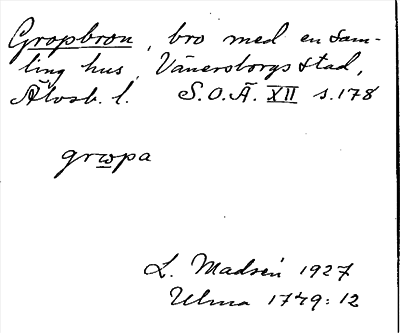 Gropbron, bro med en sam-
ling hus, Vänersborgs stad,
Älvsb. l. S.O.Ä. XII s. 178
gropa
L. Madsén 1927
Ulma 1749:12